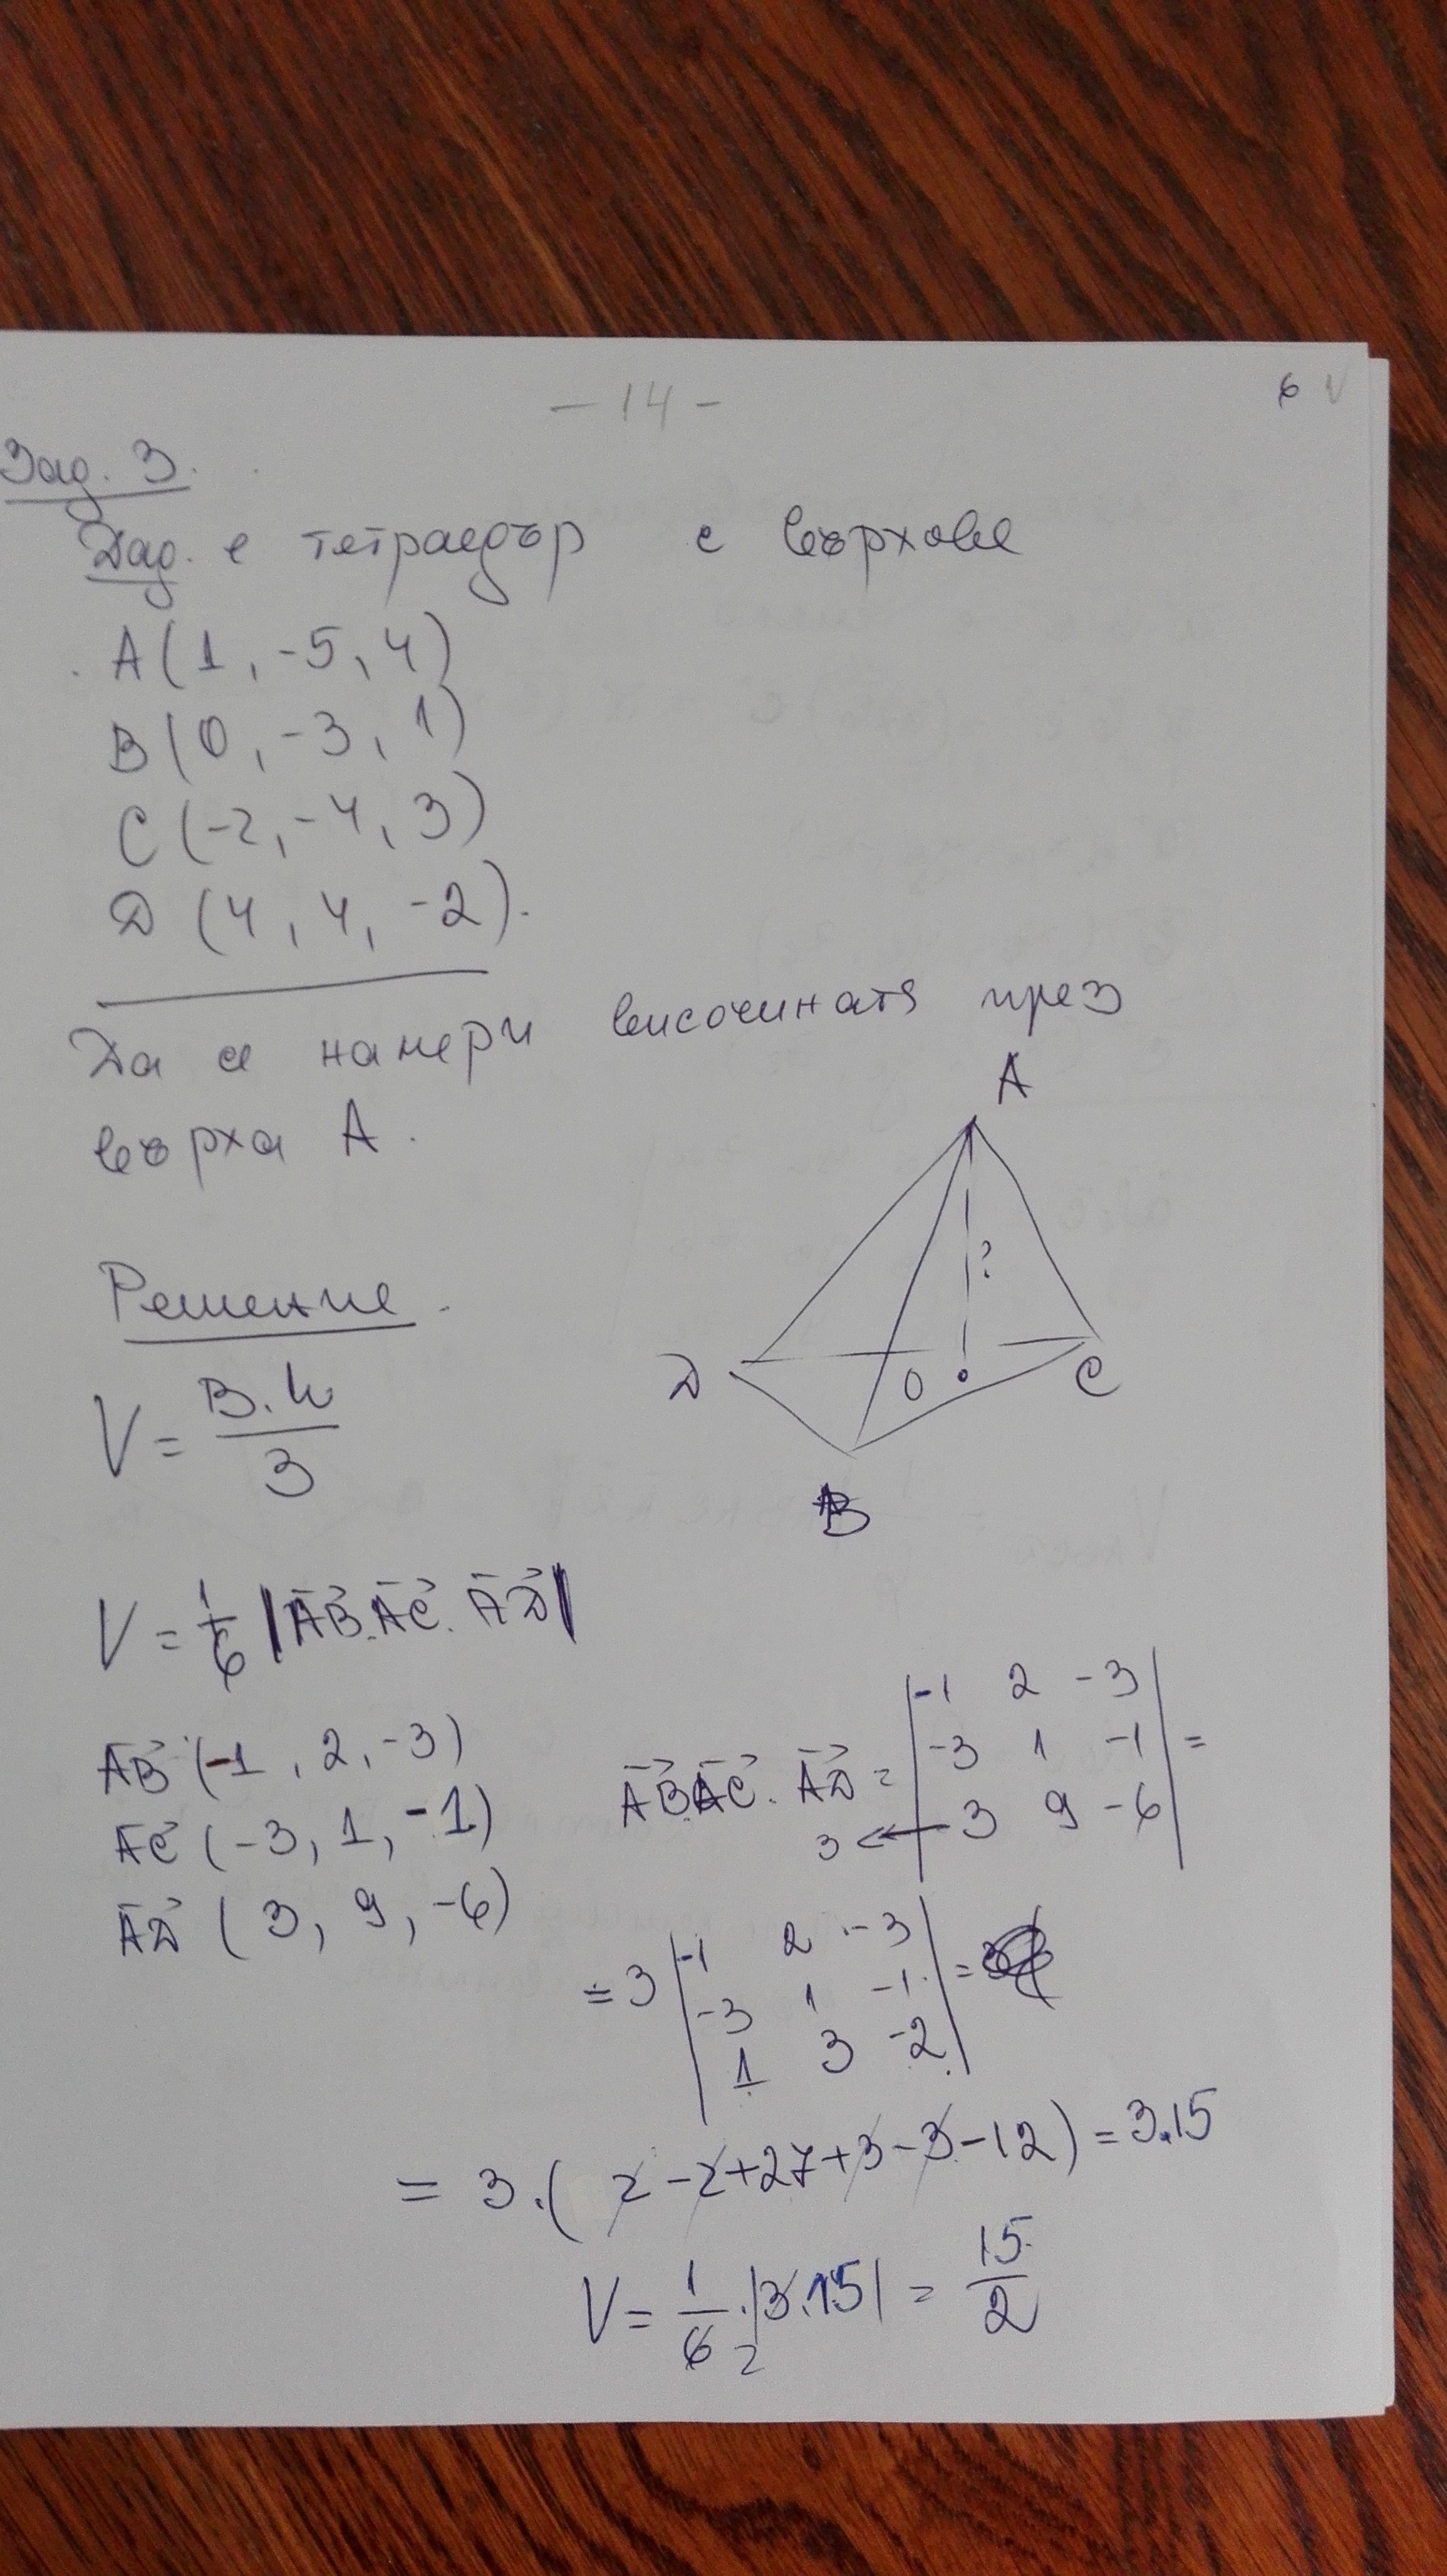 - 14 -
6 V
Зад. 3.
Дад. е тетраедър с върхове
A(1, -5, 4)
B(0, -3, 1)
C(-2, -4, 3)
D(4, 4, -2).
Да се намери височината през
върха A.
A
?
D O C
B
Решение.
V = B.h / 3
V = 1/6 |AB→.AC→.AD→|
AB→(-1, 2, -3)
AC→(-3, 1, -1)
AD→(3, 9, -6)
AB→.AC→.AD→ = | -1 2 -3 |
| -3 1 -1 | =
3 ← | 3 9 -6 |
= 3 | -1 2 -3 |
| -3 1 -1 | =
| 1 3 -2 |
= 3.(2 - 2 + 27 + 3 - 3 - 12) = 3.15
V = 1/6 . |3.15| = 15/2
2